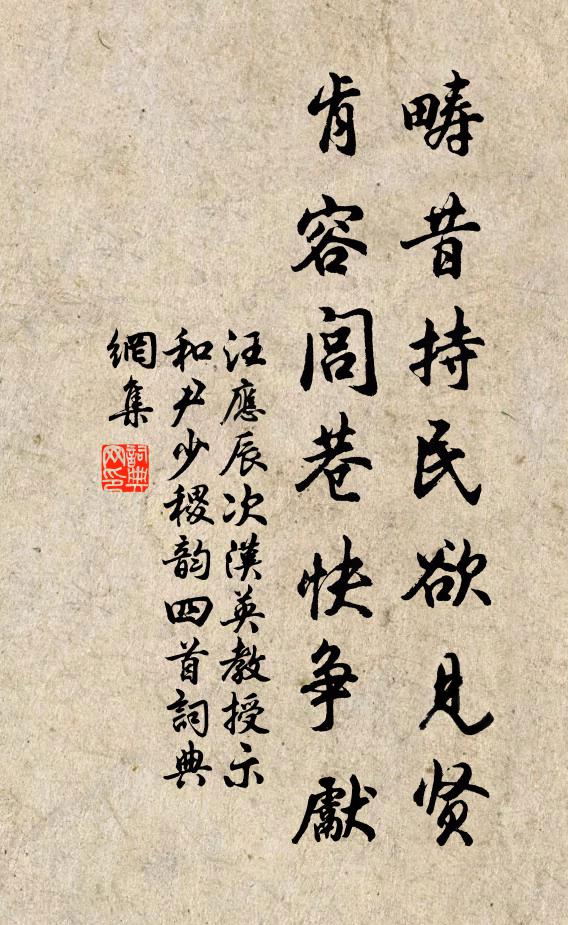 畴昔持民欲見賢
肯容閭巷快爭獻
汪應辰次漢英教授示
和尹少稷韵四首詞典
網集
詞典
网印